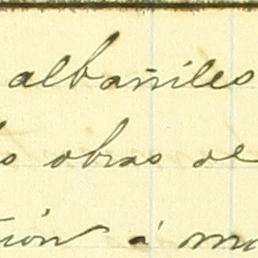 albañiles
obras de
ción á